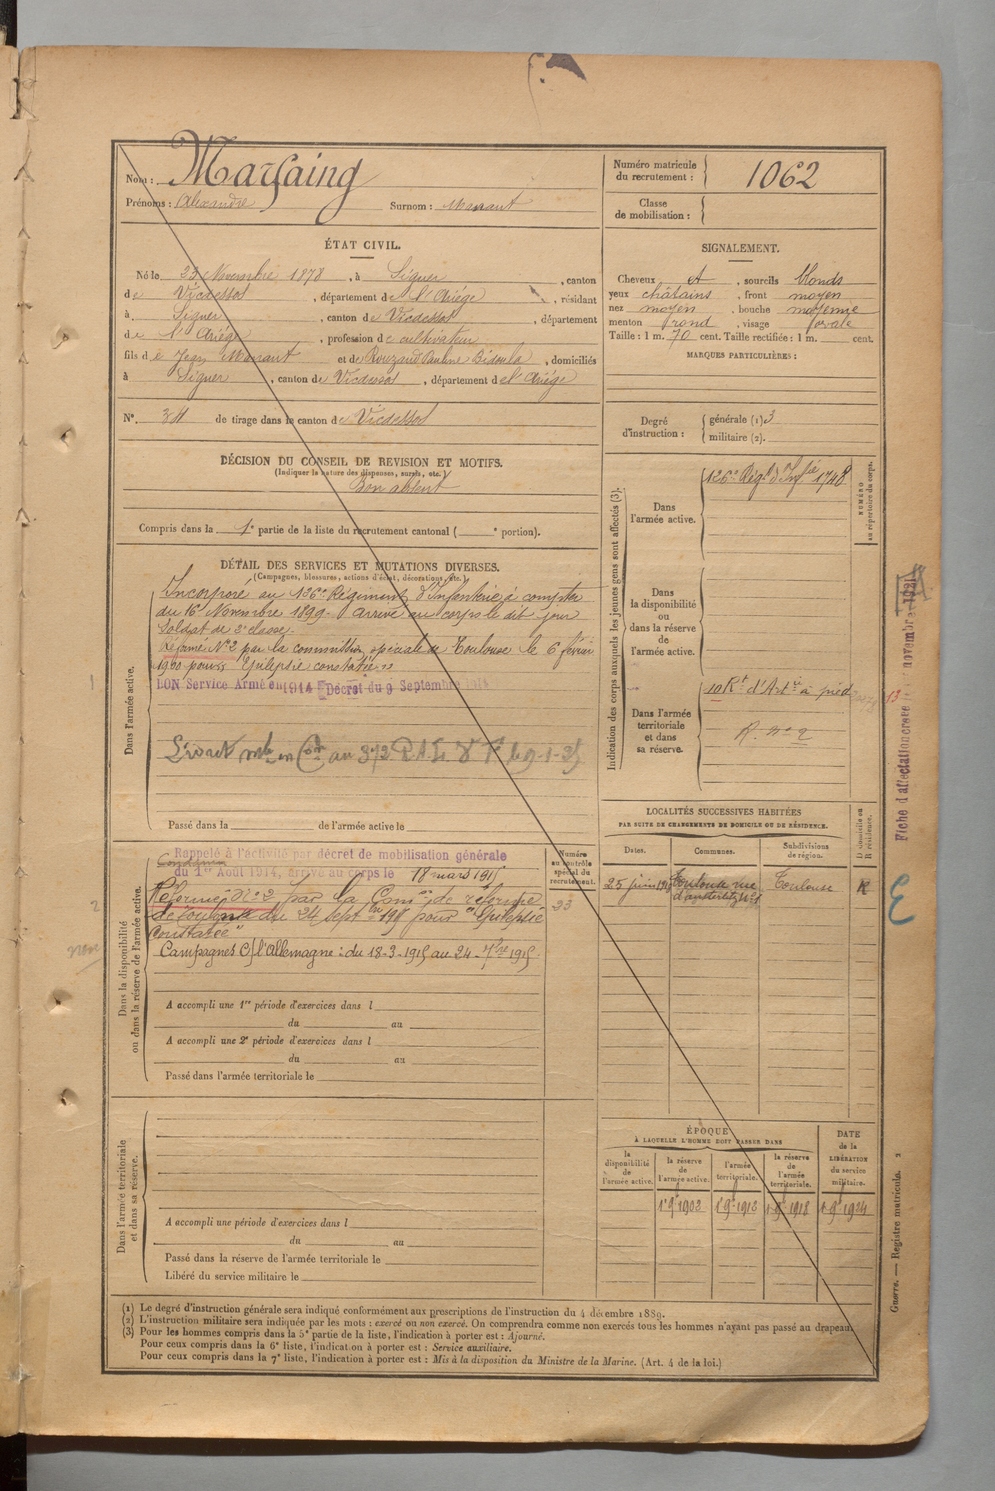 Nom : Marfaing
Prénoms : Alexandre Surnom :
Numéro matricule du recrutement : 1062
Classe de mobilisation :
ÉTAT CIVIL.
Né le 23 Novembre 1878, à Siguer, canton
de Vicdessos, département de l'Ariège, résidant
à Siguer, canton de Vicdessos, département
de l'Ariège, profession de cultivateur
fils de Jean et de Rouzaud Pauline, domiciliés
à Siguer, canton de Vicdessos, département de l'Ariège
N° de tirage dans le canton de Vicdessos
SIGNALEMENT.
Cheveux et, sourcils blonds
yeux châtains, front moyen
nez moyen, bouche moyenne
menton rond, visage ovale
Taille : 1 m. 70 cent. Taille rectifiée : 1 m. cent.
MARQUES PARTICULIÈRES :
Degré d'instruction : générale (1) 3
militaire (2).
DÉCISION DU CONSEIL DE REVISION ET MOTIFS.
(Indiquer la nature des dispenses, sursis, etc.)
Bon absent
Compris dans la 1e partie de la liste du recrutement cantonal ( e portion).
DÉTAIL DES SERVICES ET MUTATIONS DIVERSES.
(Campagnes, blessures, actions d'éclat, décorations, etc.)
Dans l'armée active.
Incorporé au 126e Régiment d'Infanterie à compter
du 16 Novembre 1899. Arrivé au corps le dit jour
Soldat de 2e classe.
Réformé N°2 par la commission spéciale de Toulouse le 6 février
1900 pour Epilepsie constatée
BON Service Armé en 1914 Décret du 9 Septembre 1914
Passé dans la de l'armée active le
Dans la disponibilité ou dans la réserve de l'armée active.
Rappelé à l'activité par décret de mobilisation générale
du 1er Août 1914, arrivé au corps le 18 mars 1915
Réformé N°2 par la Comon de réforme
de Toulouse du 24 septbre 1915 pour "Epilepsie
constatée"
Campagnes C/ l'Allemagne : du 18-3-1915 au 24-7bre 1915.
A accompli une 1re période d'exercices dans l
du au
A accompli une 2e période d'exercices dans l
du au
Passé dans l'armée territoriale le
Numéro au contrôle spécial du recrutement.
23
Dans l'armée territoriale et dans sa réserve.
A accompli une période d'exercices dans l
du au
Passé dans la réserve de l'armée territoriale le
Libéré du service militaire le
Indication des corps auxquels les jeunes gens sont affectés (3).
Dans l'armée active. 126e Régt d'Infie 1748
NUMÉRO au répertoire du corps.
Dans la disponibilité ou dans la réserve de l'armée active.
Dans l'armée territoriale et dans sa réserve. 10 Rt d'Artie à pied
R. n° 2
LOCALITÉS SUCCESSIVES HABITÉES
PAR SUITE DE CHANGEMENTS DE DOMICILE OU DE RÉSIDENCE.
Dates. Communes. Subdivisions de région. D domicile ou R résidence.
Toulouse rue d'austerlitz Toulouse R
ÉPOQUE
À LAQUELLE L'HOMME DOIT PASSER DANS
la disponibilité de l'armée active. la réserve de l'armée active. l'armée territoriale. la réserve de l'armée territoriale. DATE de la LIBÉRATION du service militaire.
Fiche d'affectation novembre 1921
Guerre. — Registre matricule. 2
(1) Le degré d'instruction générale sera indiqué conformément aux prescriptions de l'instruction du 4 décembre 1889.
(2) L'instruction militaire sera indiquée par les mots : exercé ou non exercé. On comprendra comme non exercés tous les hommes n'ayant pas passé au drapeau.
(3) Pour les hommes compris dans la 5e partie de la liste, l'indication à porter est : Ajourné.
Pour ceux compris dans la 6e liste, l'indication à porter est : Service auxiliaire.
Pour ceux compris dans la 7e liste, l'indication à porter est : Mis à la disposition du Ministre de la Marine. (Art. 4 de la loi.)